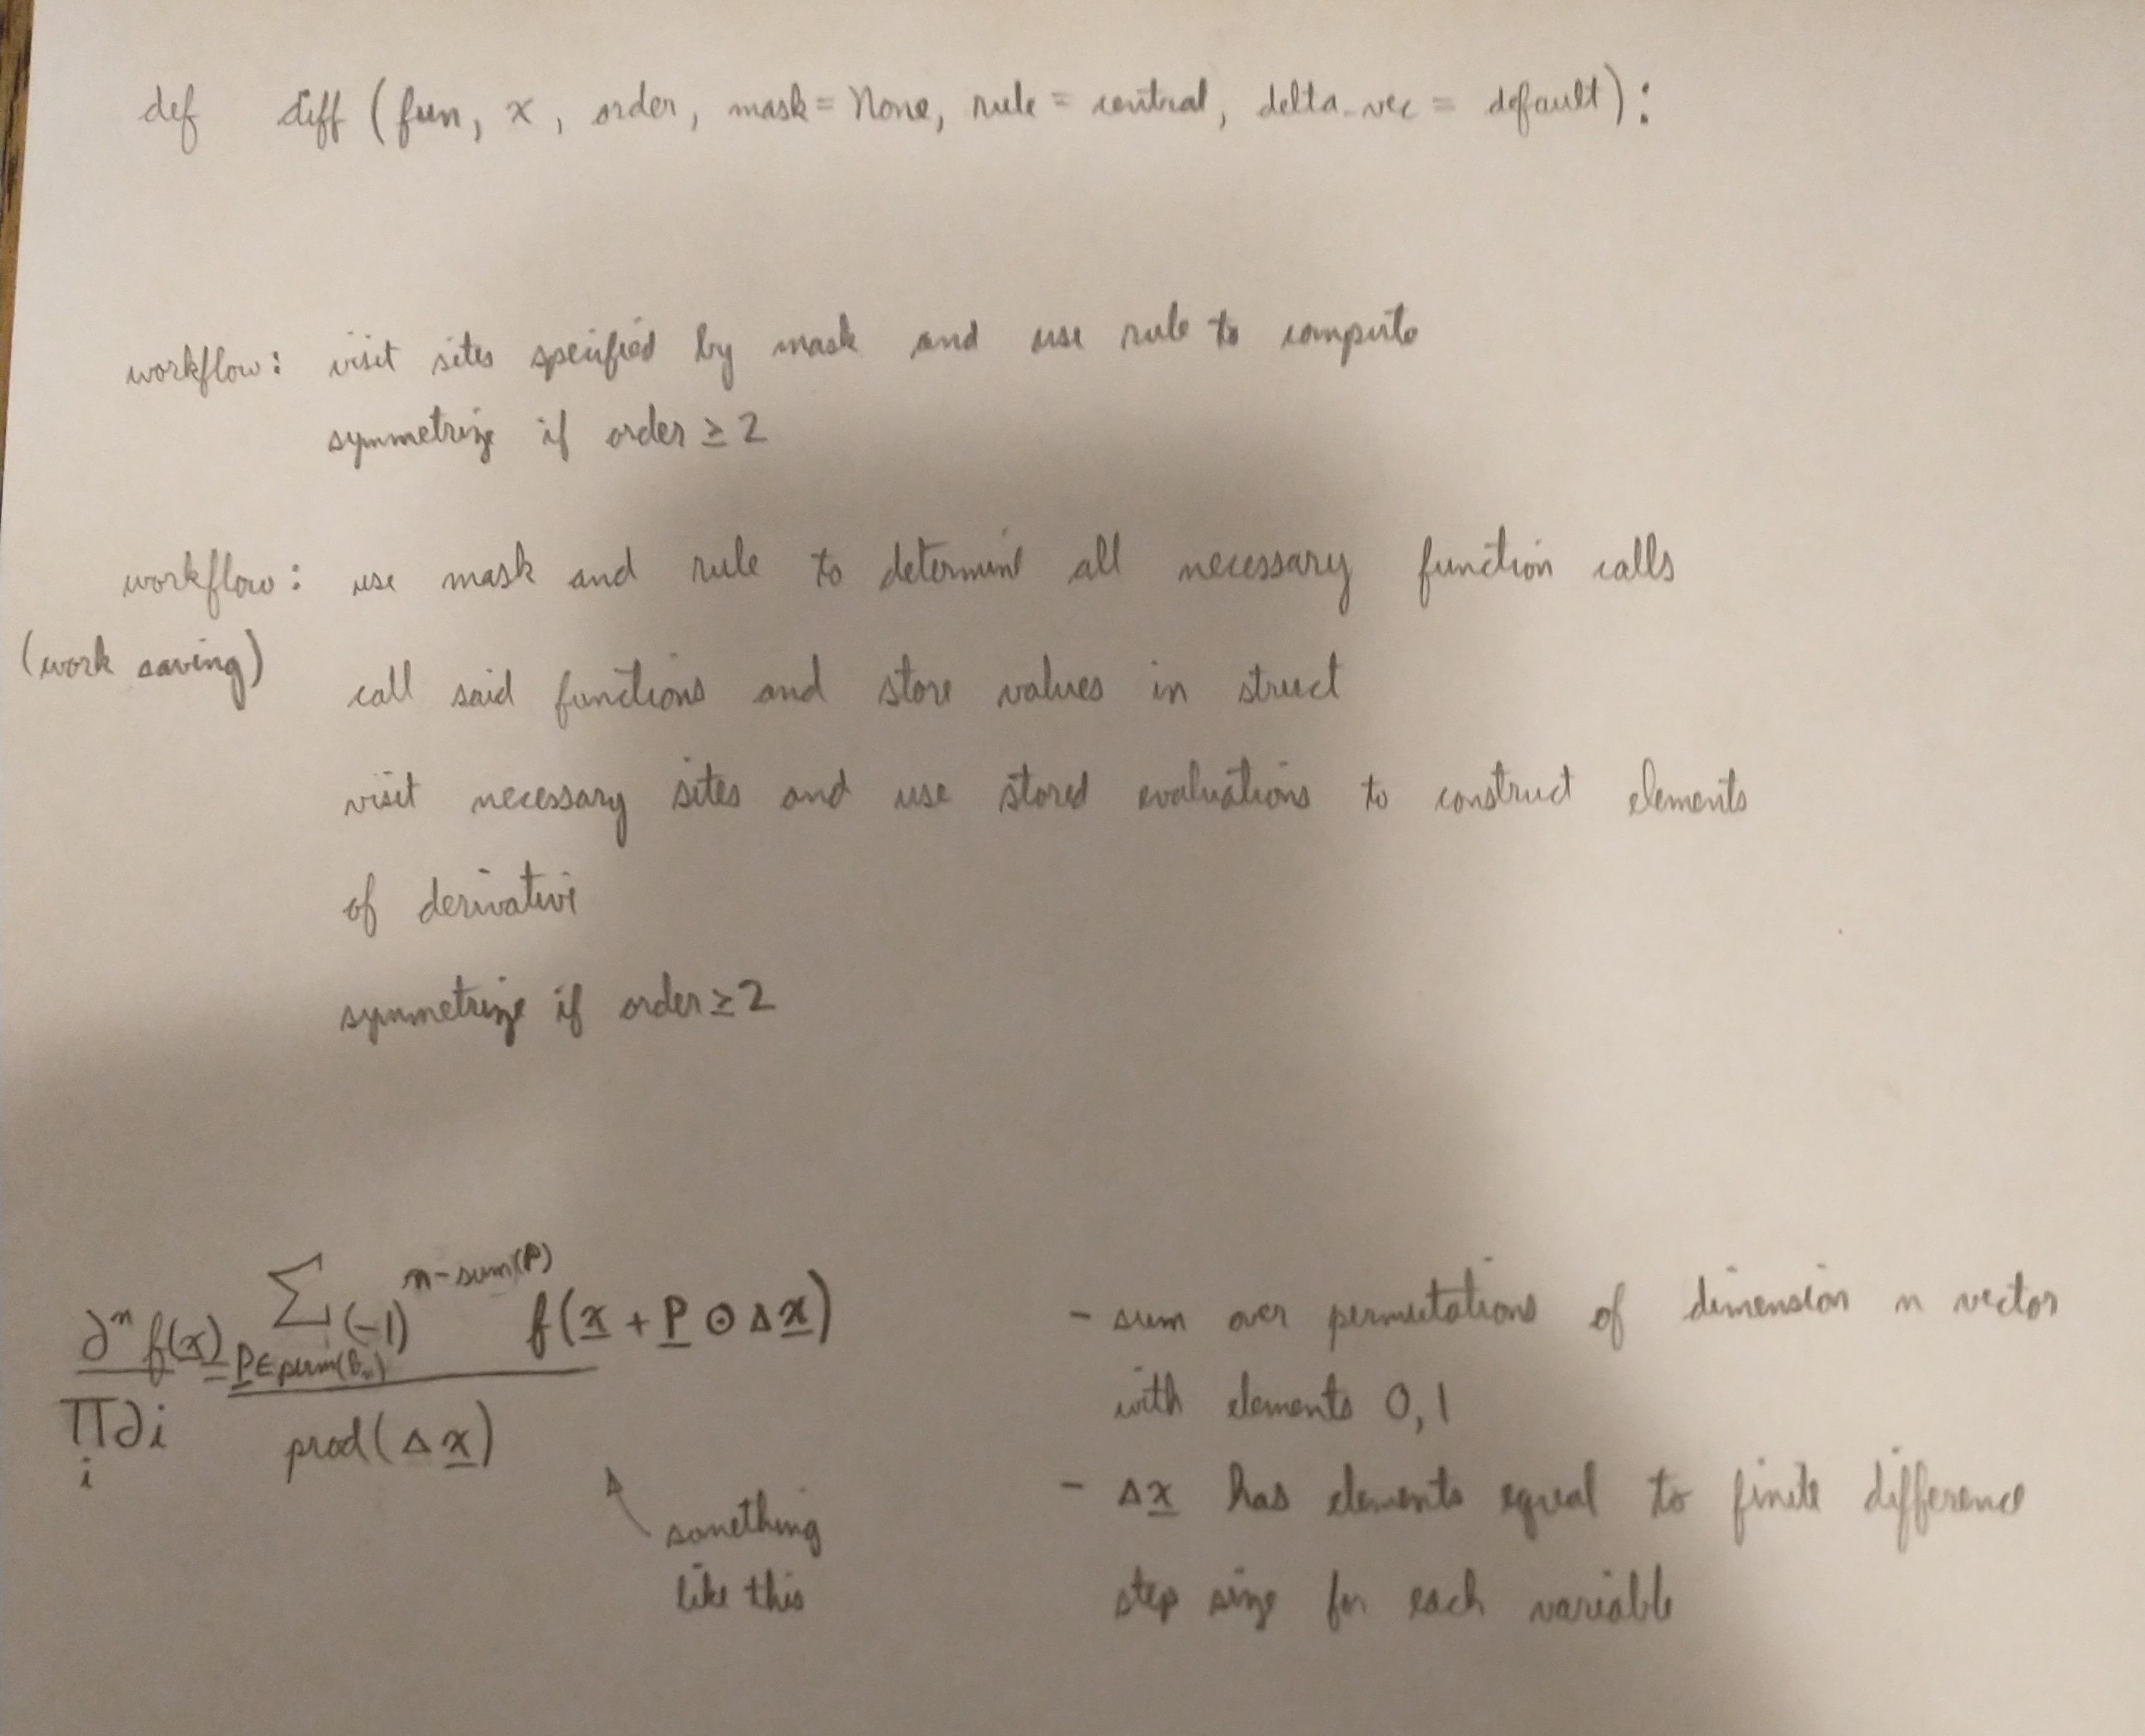 def diff (fun, x, order, mask = None, rule = central, delta_vec = default):
workflow: visit sites specified by mask and use rule to compute
symmetrize if order ≥ 2
workflow: use mask and rule to determine all necessary function calls
(work saving)
call said functions and store values in struct
visit necessary sites and use stored evaluations to construct elements
of derivative
symmetrize if order ≥ 2
∂ⁿ f(x) / ∏_i ∂i = ∑_{P ∈ perm(B_n)} (-1)^{n - sum(P)} f(x + P ⊙ Δx) / prod(Δx)
something
like this
- sum over permutations of dimension n vector
with elements 0, 1
- Δx has elements equal to finite difference
step size for each variable